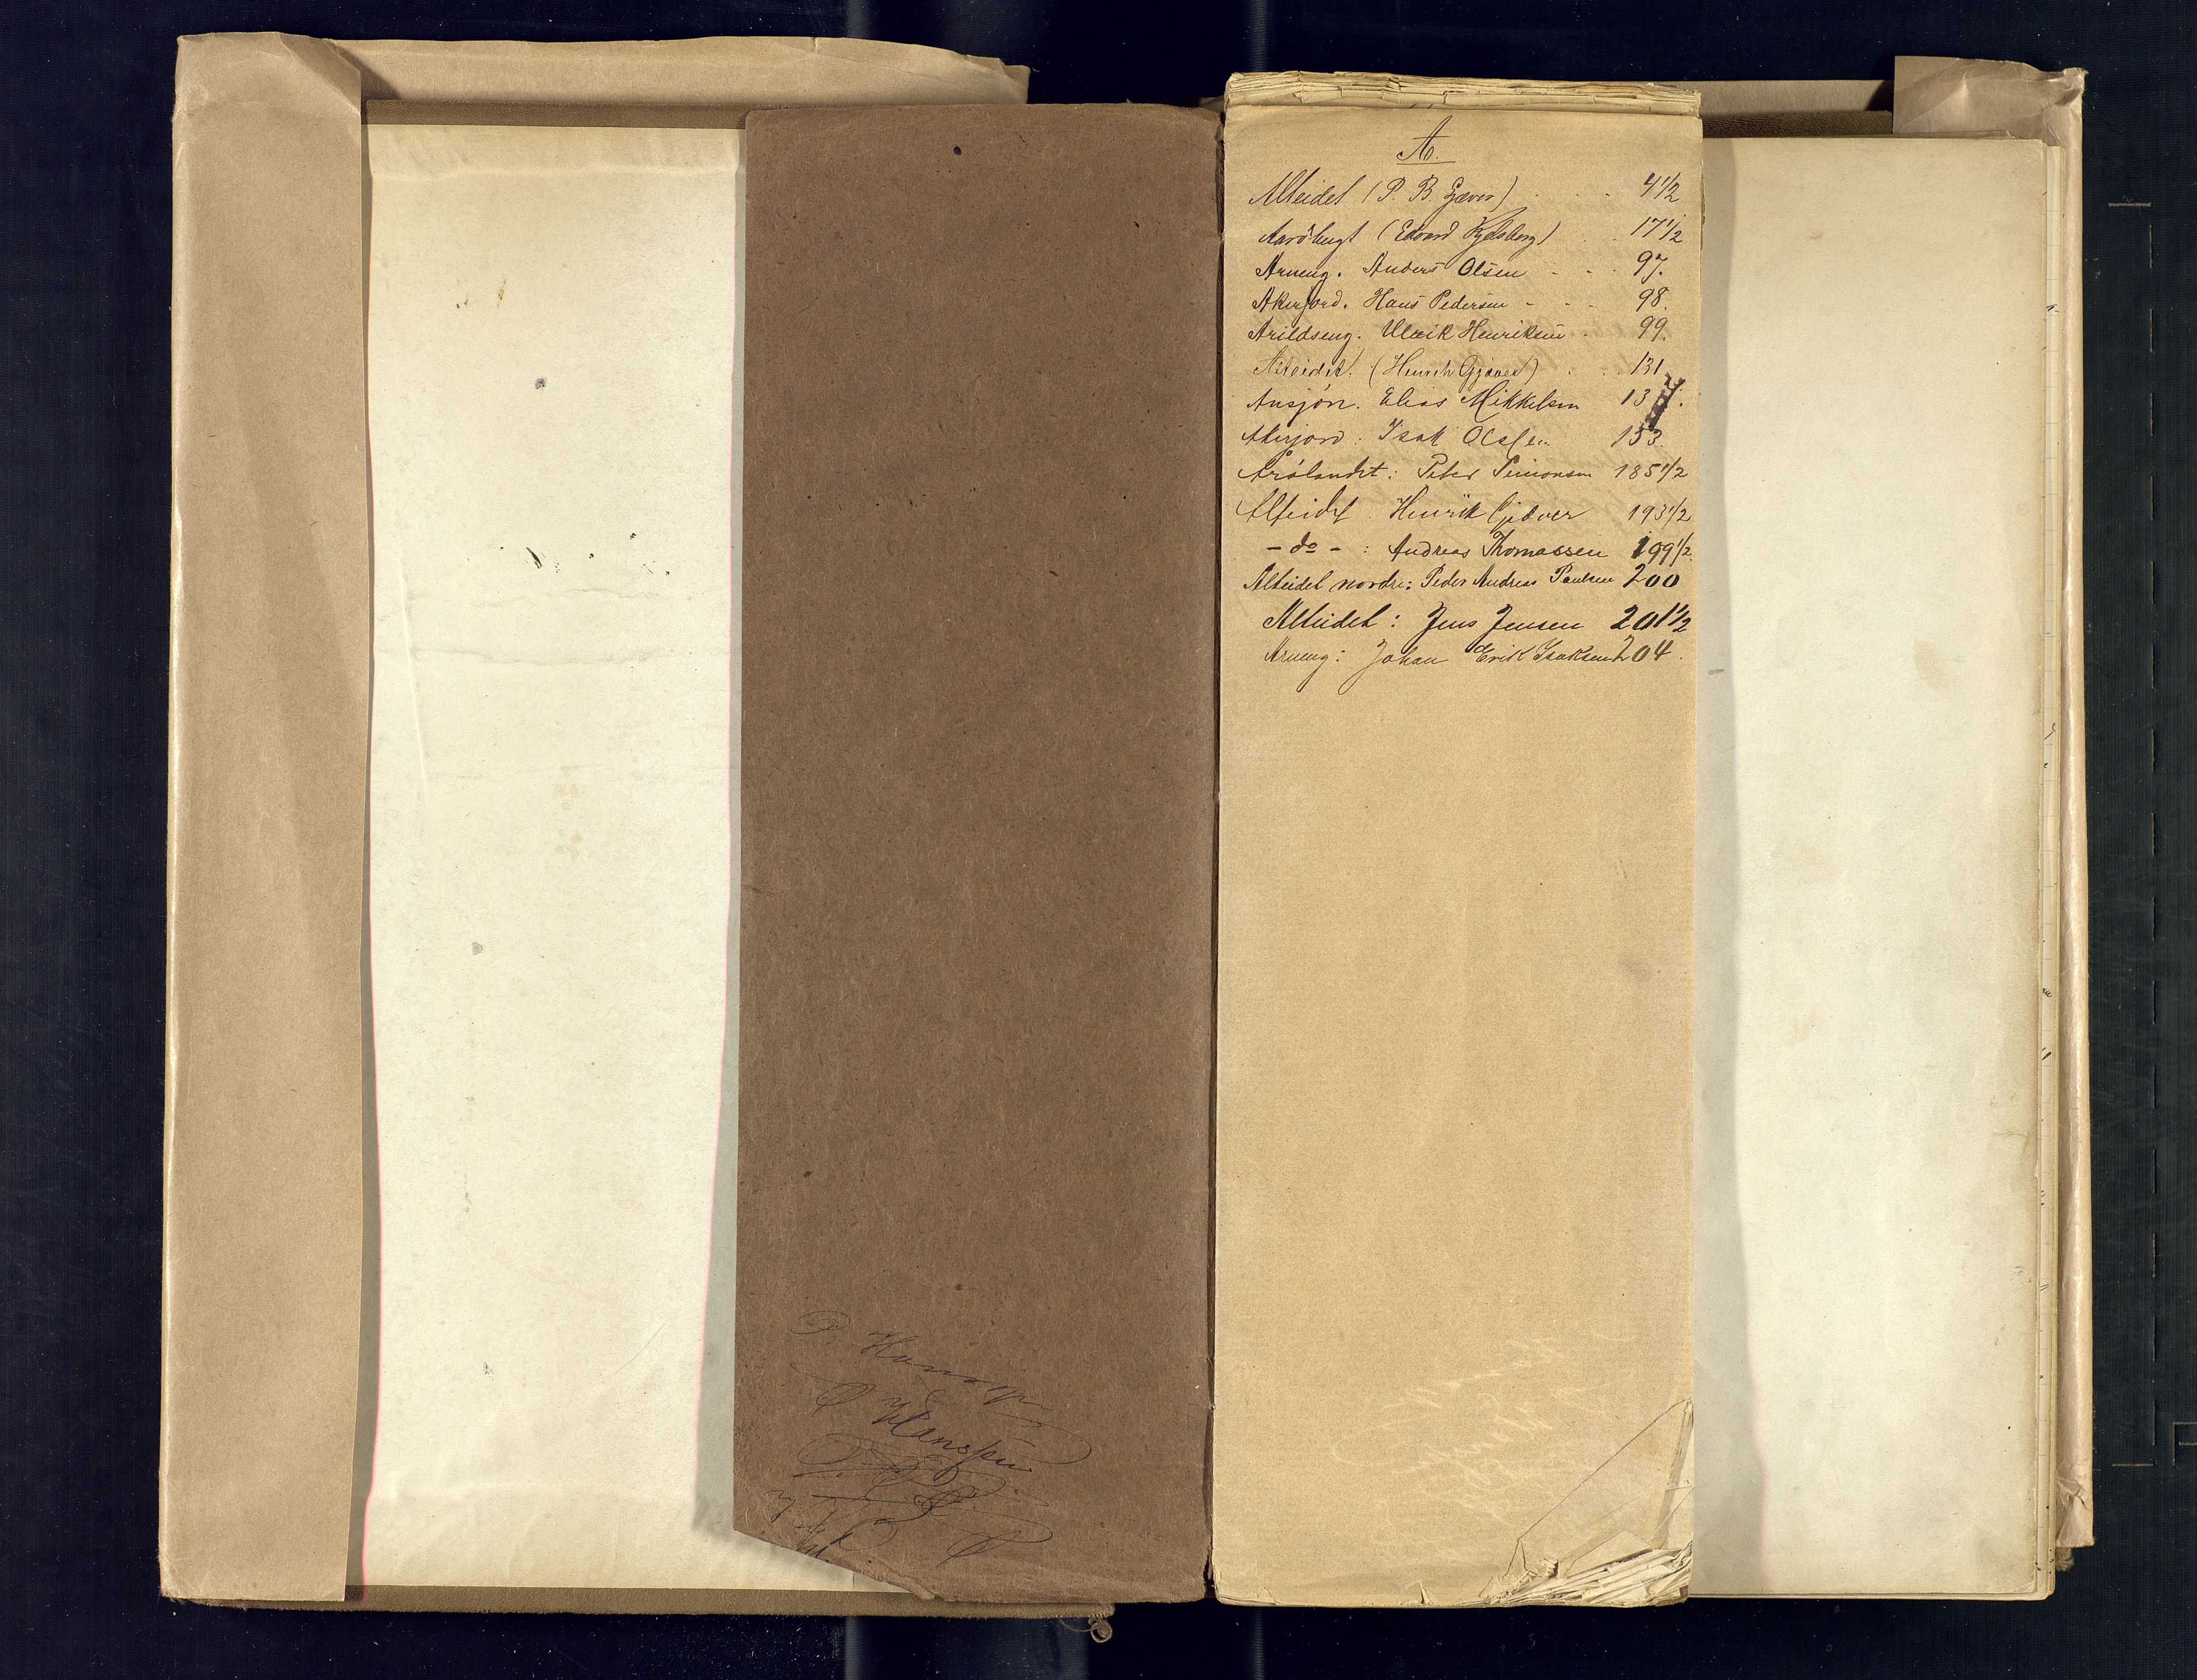 P. Hanssen
P Hanssen
A.
Alteidet (P. B. Giæver) . . . 4 1/2
Aarøbugt (Edvard Kjelsberg) . . 17 1/2
Arneng. Anders Olsen - - - 97.
Akerjord. Hans Pedersen - - - 98.
Arildseng. Ulrik Henriksen . 99.
Alteidet. (Henrik Gjæver) . . . 131
Ansjön. Elias Mikkelsen 137.
Akerjord. Isak Olsen 153.
Arölandet: Peter Simonsen 185 1/2
Alteidet Henrik Gjæver 193 1/2
- do - : Andreas Thomassen 199 1/2
Alteidet nordre: Peder Andreas Paulsen 200
Alteidet: Jens Jensen 201 1/2
Arneng: Johan Erik Isaksen 204.